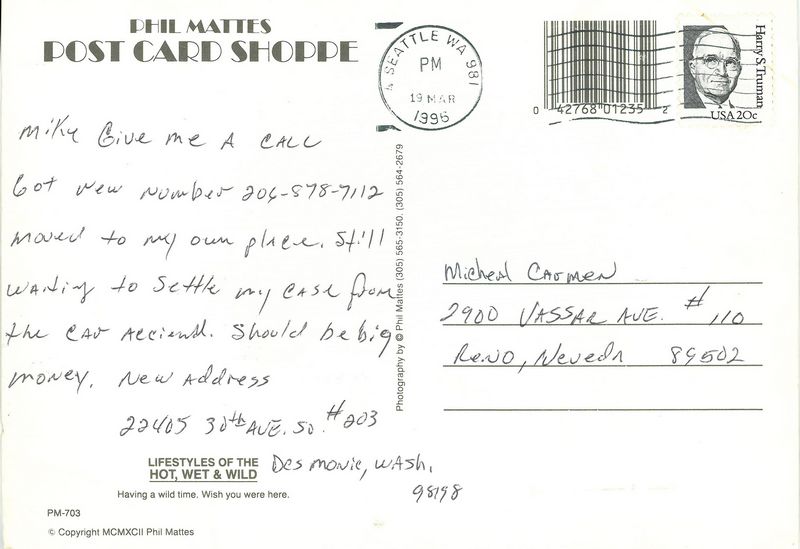 PHIL MATTES
POST CARD SHOPPE
SEATTLE WA 981
PM
19 MAR
1996
0 42768 01235 2
Harry S. Truman
USA 20c
Mike Give me A CALL
Got New Number 206-878-7112
moved to my own place. Still
waiting to Settle my CASE from
the CAR Acciend. Should be big
money. New Address
22405 30th AVE. SO. #203
Des Monie, WASh,
98198
LIFESTYLES OF THE
HOT, WET & WILD
Having a wild time. Wish you were here.
PM-703
© Copyright MCMXCII Phil Mattes
Photography by © Phil Mattes (305) 565-3150, (305) 564-2679
Micheal Carmen
2900 VASSAR AVE. # 110
Reno, Nevedn 89502